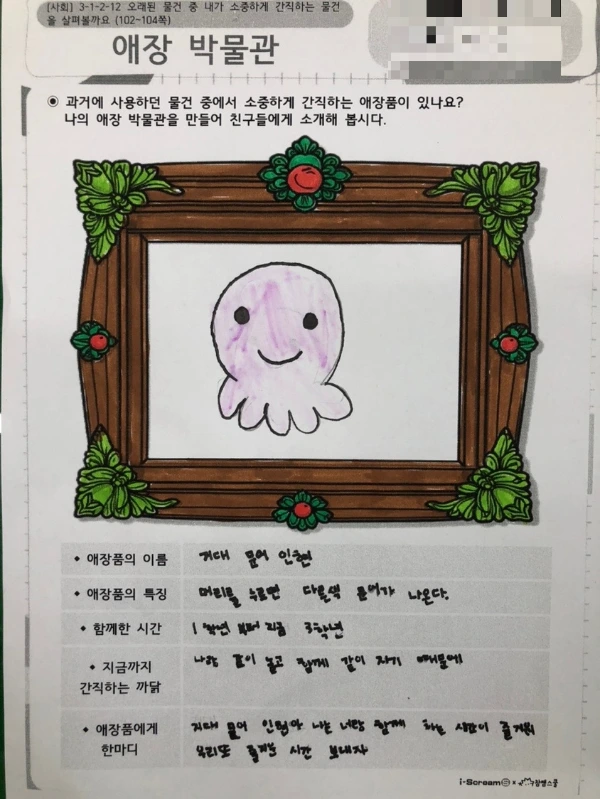 [사회] 3-1-2-12 오래된 물건 중 내가 소중하게 간직하는 물건
을 살펴볼까요 (102~104쪽)
애장 박물관
◉ 과거에 사용하던 물건 중에서 소중하게 간직하는 애장품이 있나요?
나의 애장 박물관을 만들어 친구들에게 소개해 봅시다.
• 애장품의 이름 거대 문어 인형
• 애장품의 특징 머리를 누르면 다른색 문어가 나온다.
• 함께한 시간 1학년 부터 지금 3학년
• 지금까지 나랑 같이 놀고 함께 같이 자기 때문에
간직하는 까닭
• 애장품에게 거대 문어 인형아 나는 너랑 함께 하는 시간이 즐거워
한마디 우리또 즐거운 시간 보내자
i-Scream S x